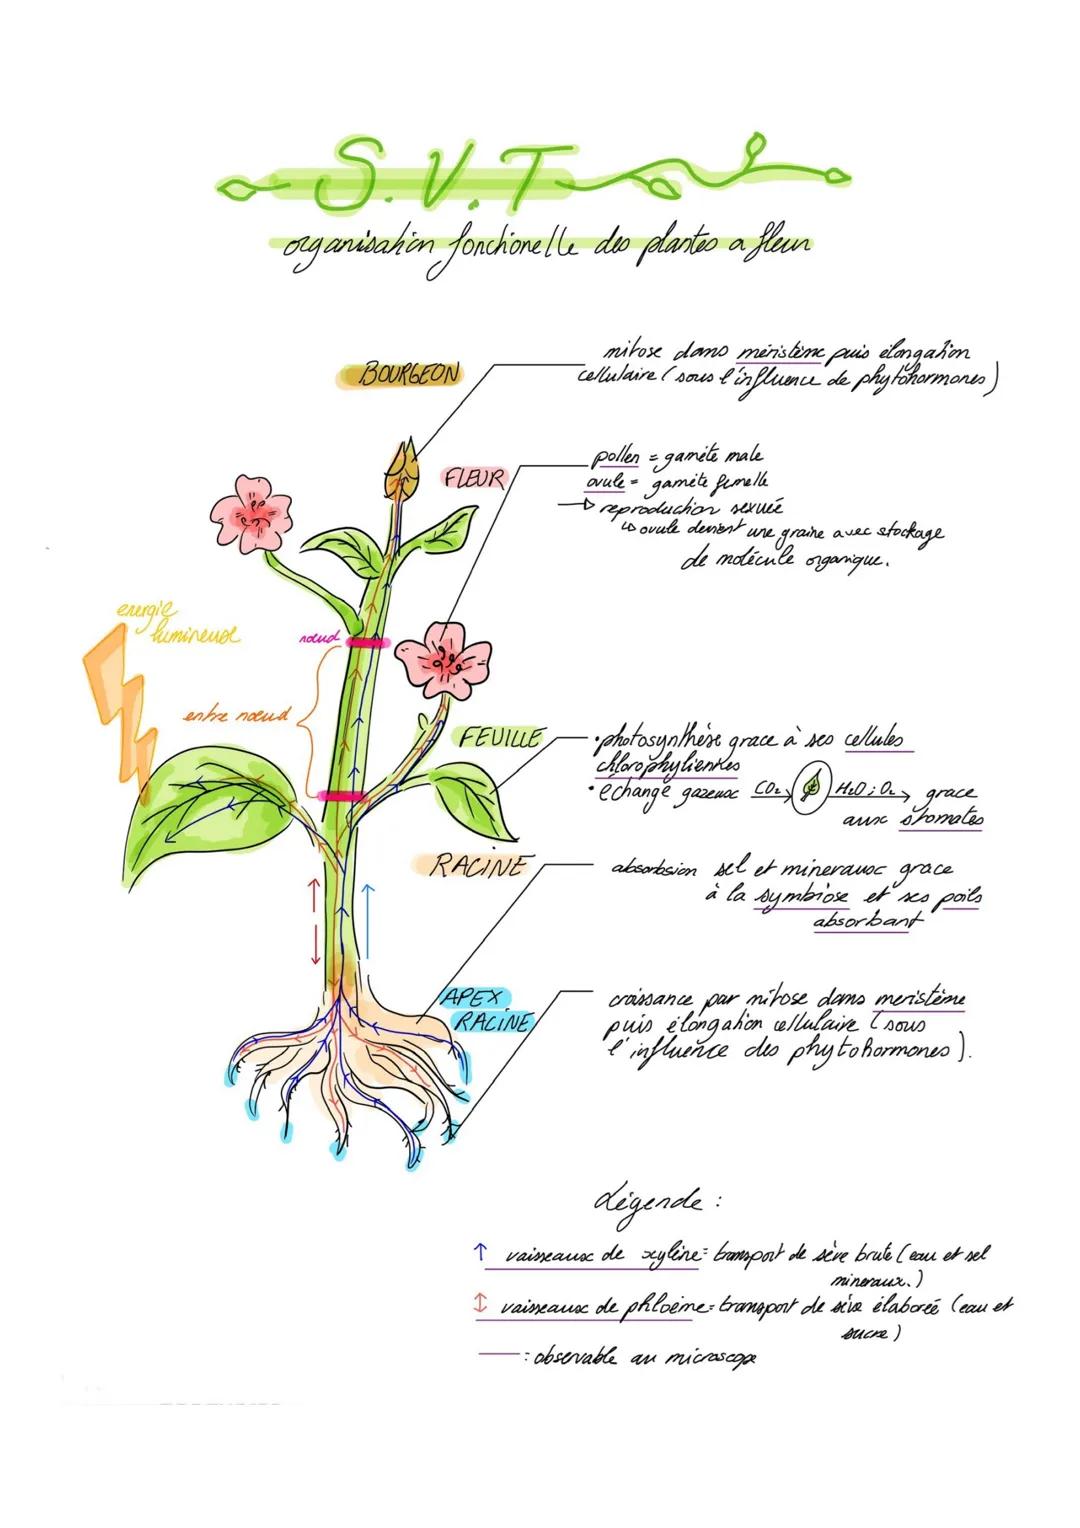 S.V.T
organisation fonctionelle des plantes a fleur
BOURGEON
mitose dans méristème puis élongation
cellulaire (sous l'influence de phytohormones)
FLEUR
pollen = gamète male
ovule = gamète femelle
→ reproduction sexuée
↳ ovule devient une graine avec stockage
de molécule organique.
energie
lumineuse
nœud
entre nœud
FEUILLE
• photosynthèse grace à ses cellules
chlorophyliennes
• echange gazeux CO2 → H2O ; O2 → grace
aux stomates
RACINE
absorbsion sel et mineraux grace
à la symbiose et ses poils
absorbant
APEX
RACINE
croissance par mitose dans meristème
puis élongation cellulaire (sous
l'influence des phytohormones).
Légende :
↑ vaisseaux de xylène = transport de sève brute (eau et sel
mineraux.)
↕ vaisseaux de phloème = transport de sève élaboreé (eau et
sucre)
— : observable au microscope